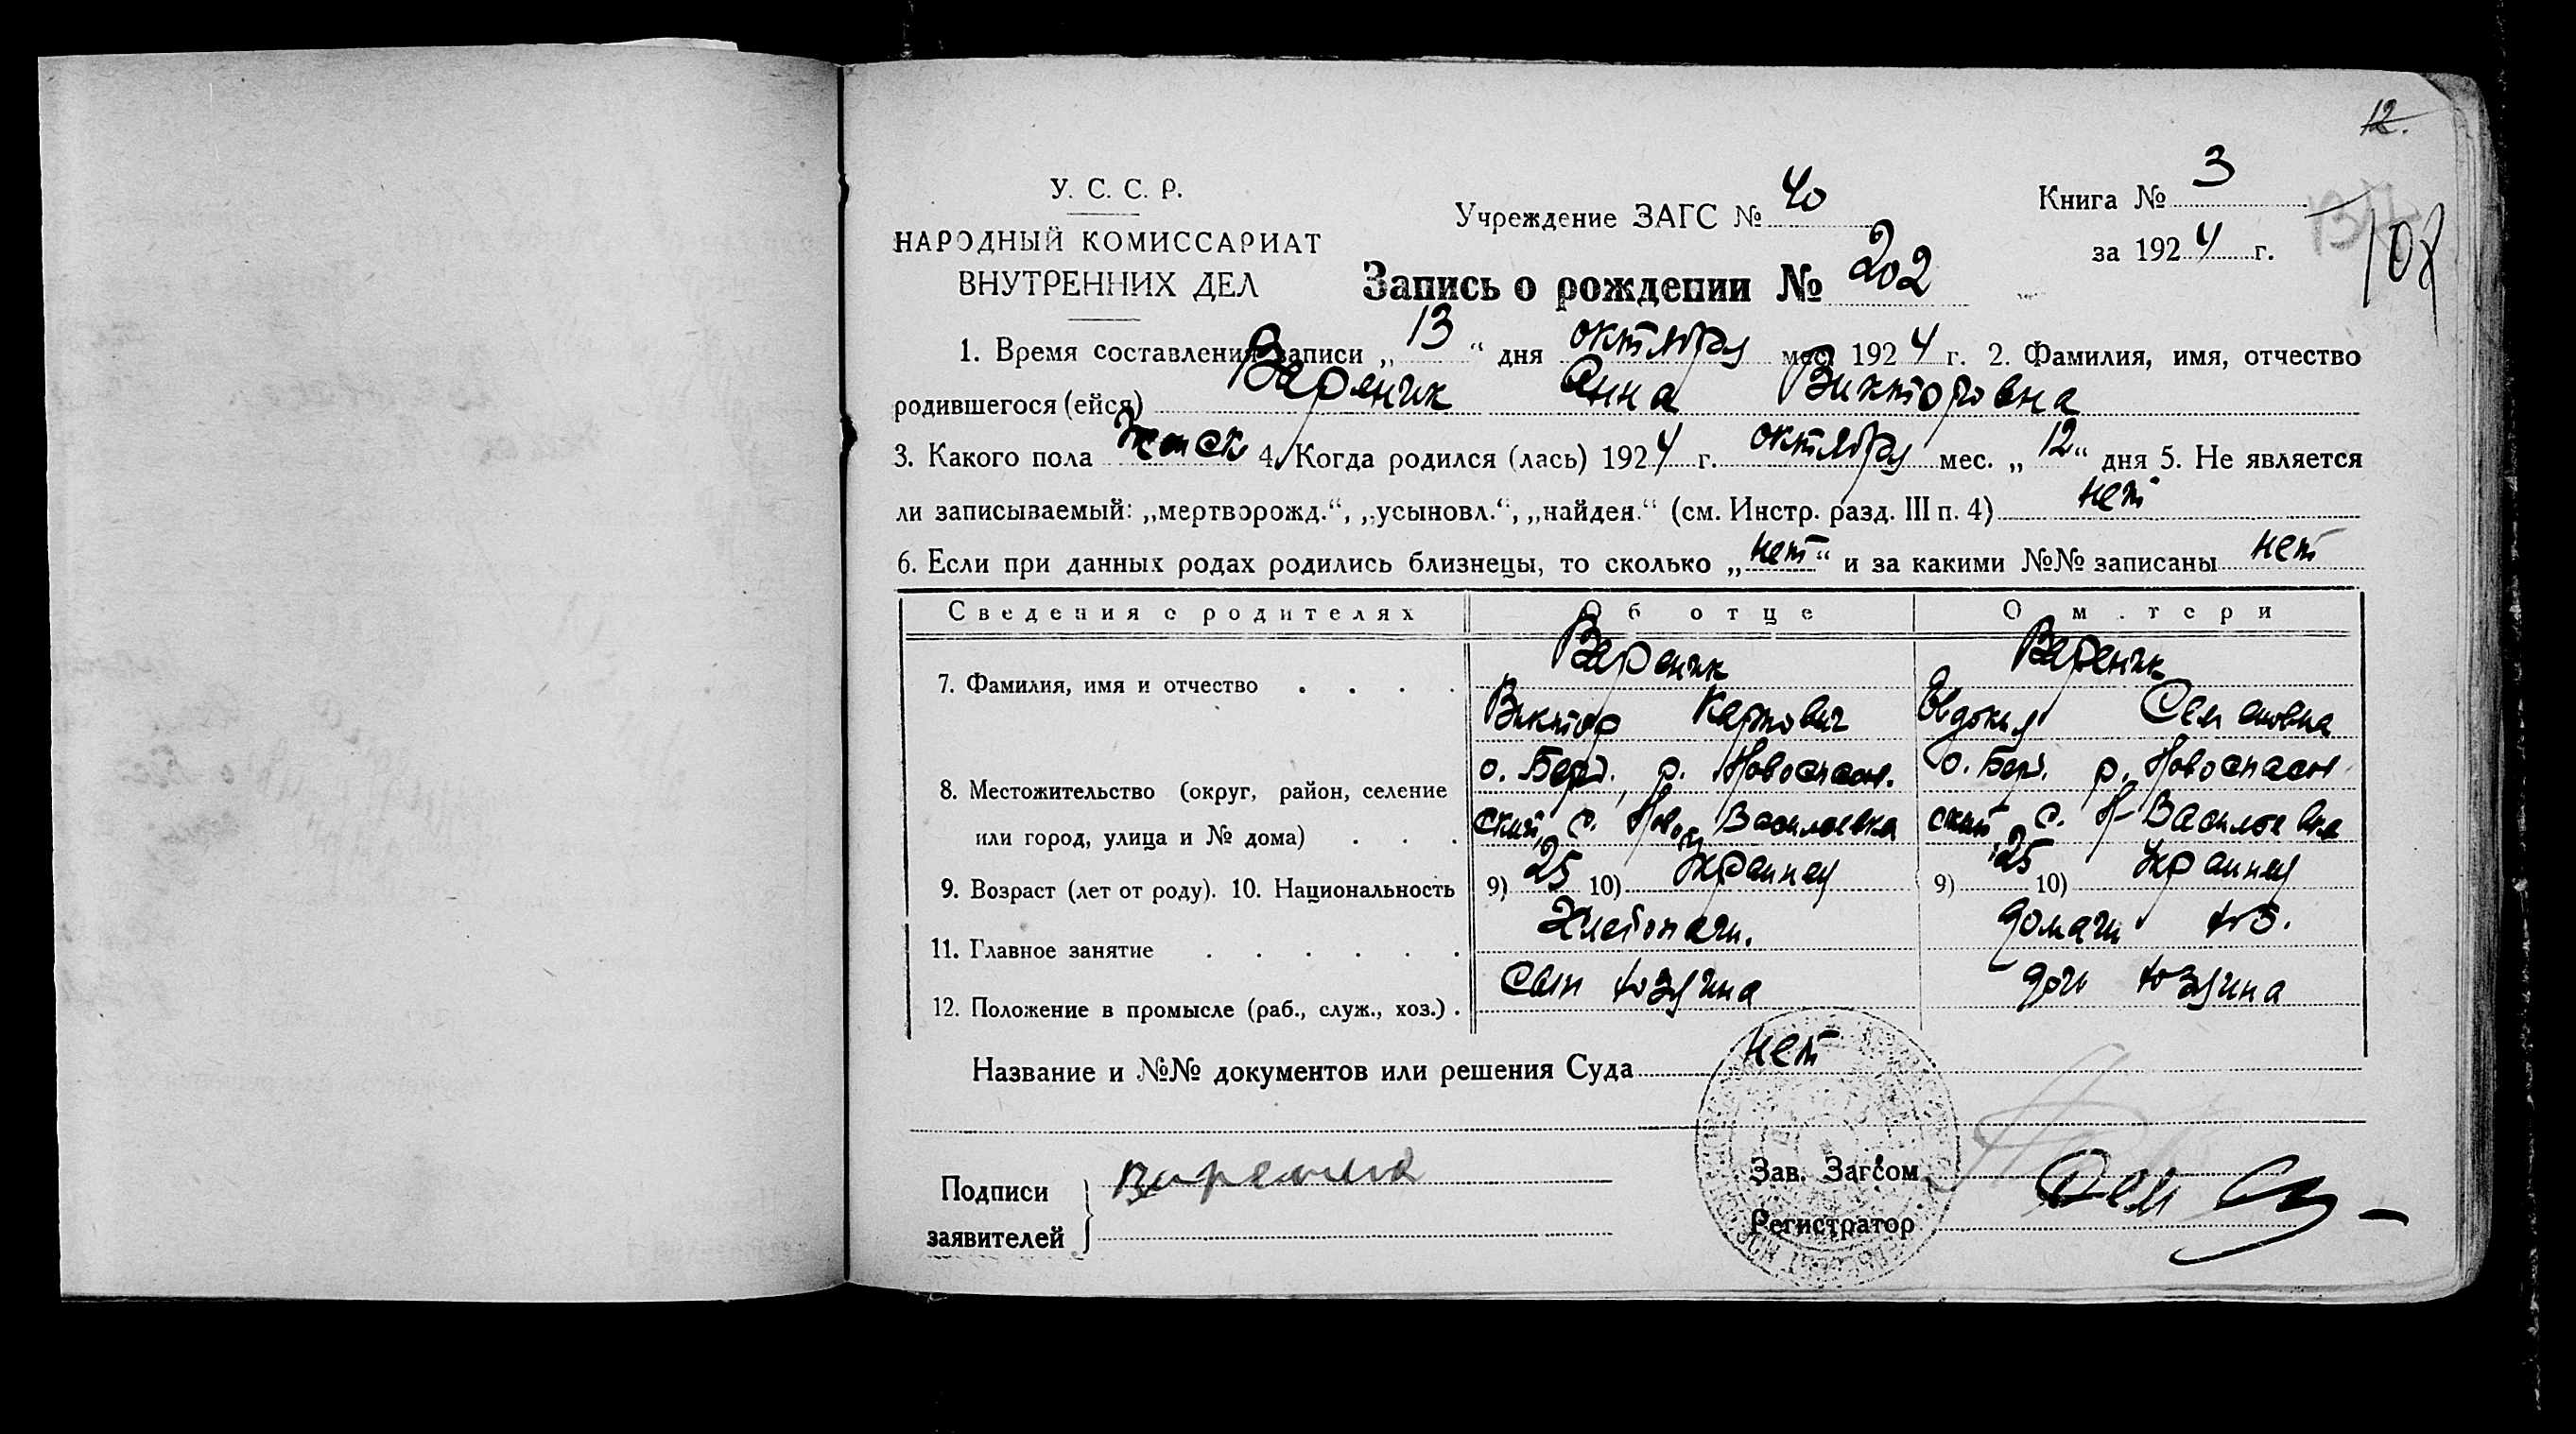 12.
У. С. С. Р.
НАРОДНЫЙ КОМИССАРИАТ
ВНУТРЕННИХ ДЕЛ
Учреждение ЗАГС № 40
Книга № 3
за 1924 г.
107
Запись о рождении № 202
1. Время составления записи „13“ дня октября мес. 1924 г. 2. Фамилия, имя, отчество
родившегося (ейся) Вареник Анна Викторовна
3. Какого пола женск 4. Когда родился (лась) 1924 г. октября мес. „12“ дня 5. Не является
ли записываемый: „мертворожд.“, „усыновл.“, „найден.“ (см. Инстр. разд. III п. 4) нет
6. Если при данных родах родились близнецы, то сколько „нет“ и за какими №№ записаны нет
Сведения о родителях Об отце О м тери
7. Фамилия, имя и отчество Вареник Вареник
Виктор Карпович Евдокия Семеновна
8. Местожительство (округ, район, селение о. Берд. р. Новоспасов. о. Берд. р. Новоспасов
или город, улица и № дома) ский, с. Ново Васильевка ский с. Н-Васильевка
9. Возраст (лет от роду). 10. Национальность 9) 25 10) Украинец 9) 25 10) Украин
11. Главное занятие Хлебопаш. домаш хоз.
12. Положение в промысле (раб., служ., хоз.) Сын хозяина доч хозяина
Название и №№ документов или решения Суда нет
Подписи
заявителей
Зав. Загсом
Регистратор